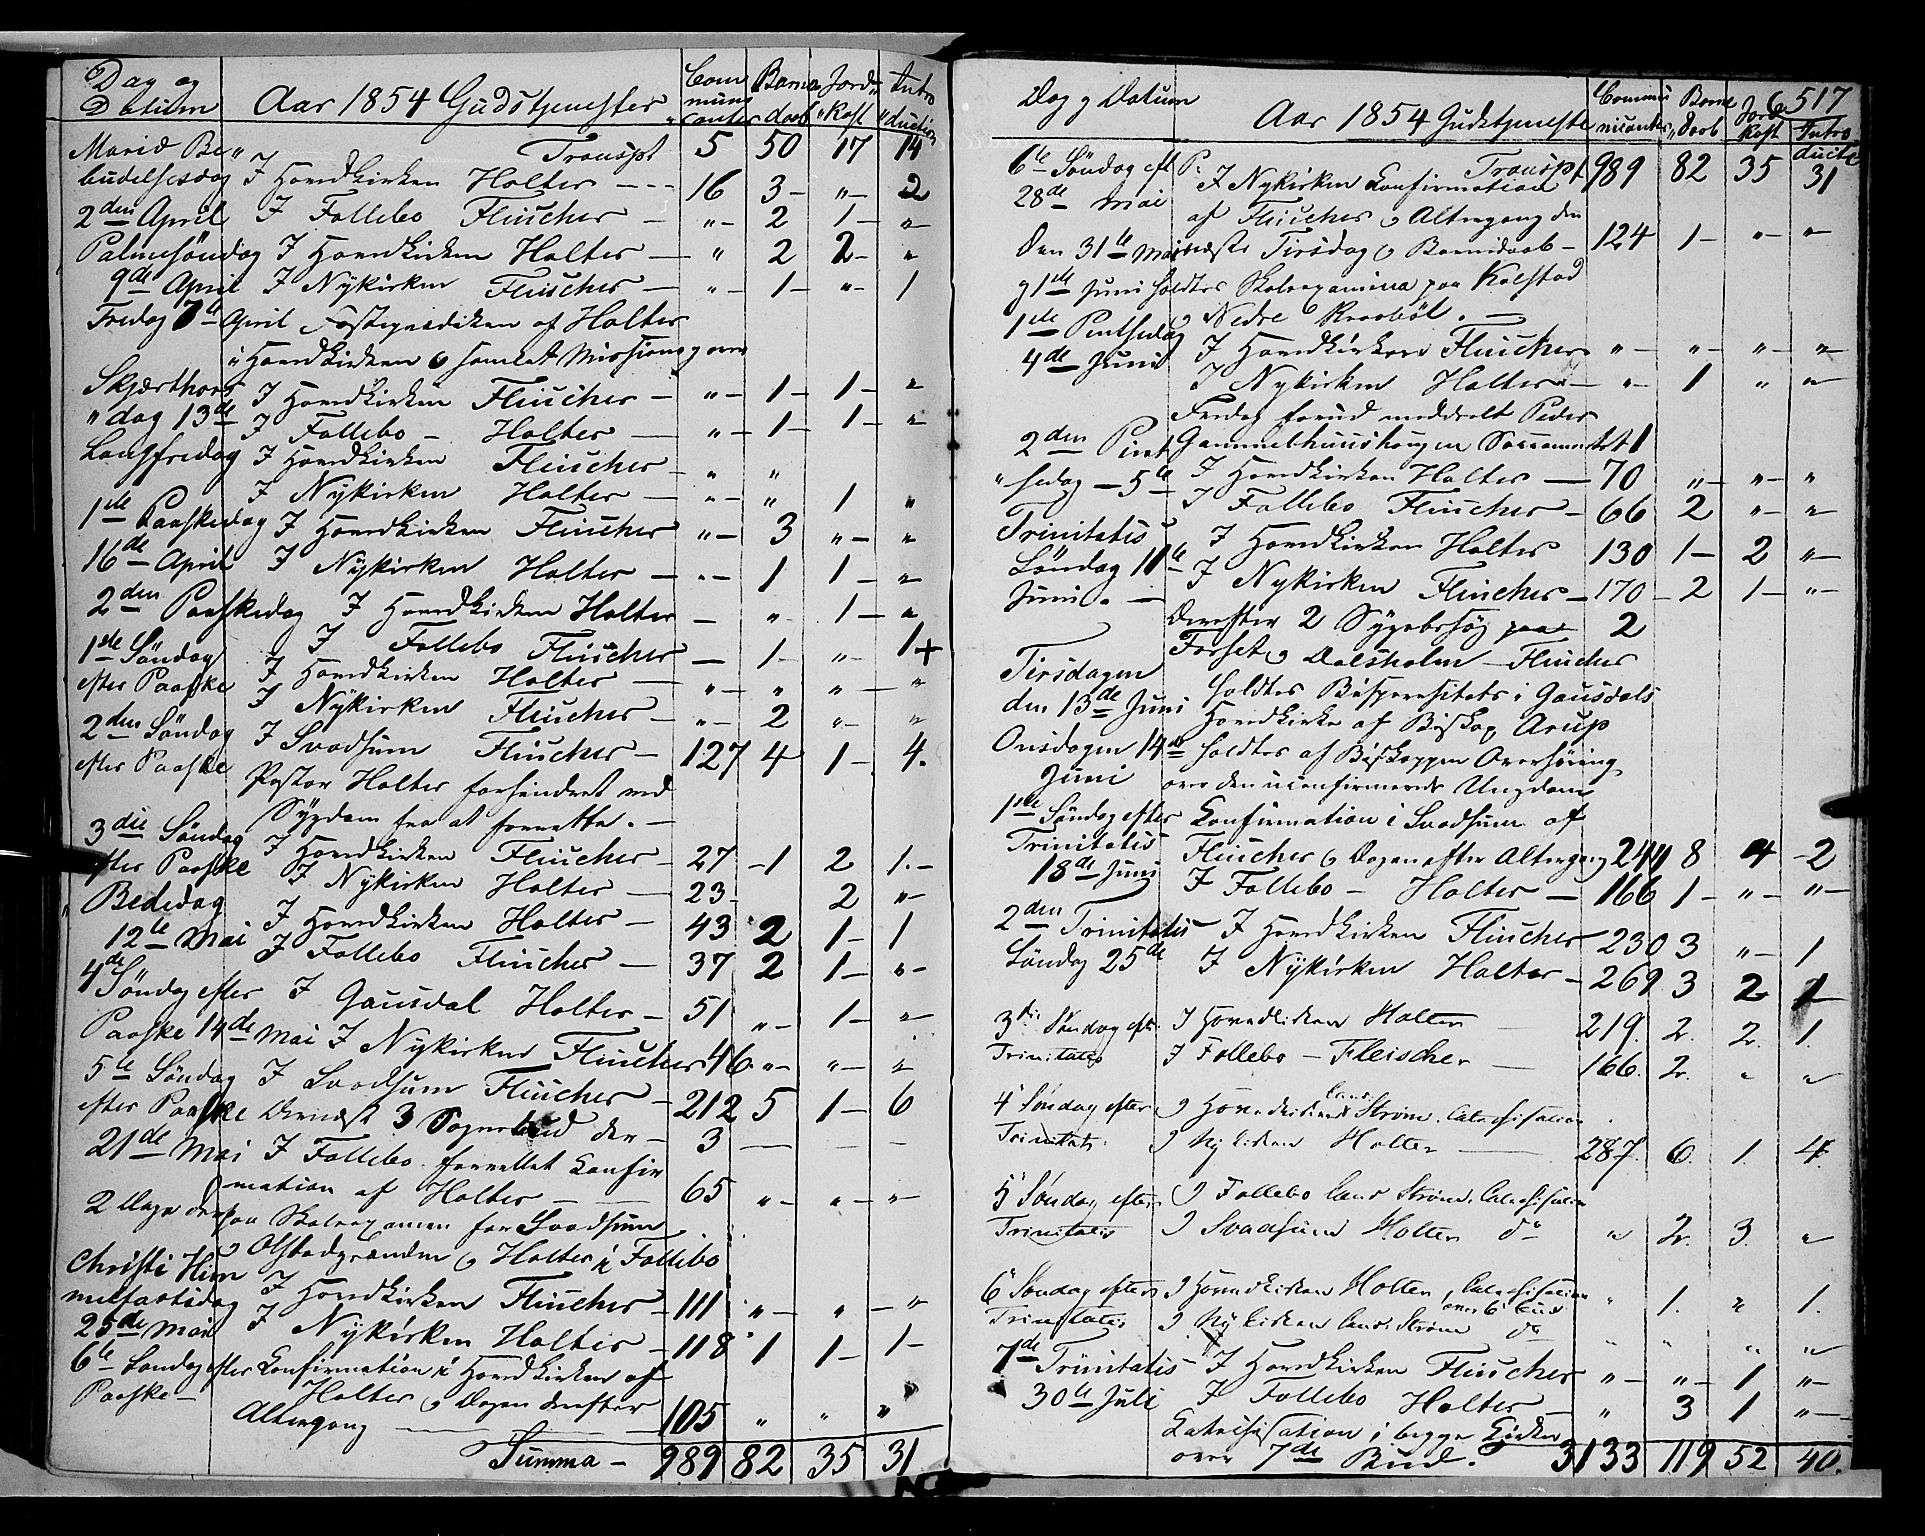 Dag og Datum Aar 1854 Gudstjenester Com municanter Barne daab Jord kast Intro duction
Mariæ Be Transpt 5 50 17 14
budelsesdag I Hovedkirken Holter --- 16 3 - „ - 2
2den April I Follebo Fleischer - „ - 2 1 - „
Palmesöndag I Hovedkirken Holter - „ 2 2 - „
9de April I Nykirken Fleischer - „ - 1 - „ - 1
Fredag 7de April Fasteprædiken af Holter
i Hovedkirken & samlet Missions
Skjærthors I Hovedkirken Fleischer - „ - 1 - 1 - „
„dag 13de I Follebo - Holter - „ - 1 - 1 - „
Langfredag I Hovedkirken Fleischer - „ „
I Nykirken Holter - „ - „ 1 „
1ste Paaskedag I Hovedkirken Fleischer „ - 3 „ - „
16de April I Nykirken Holter - „ - 1 1 - „
2den Paaskedag I Hovedkirken Holter - „ 1 - „
I Follebo Fleischer - 1 - „ - 1+
1ste Söndag I Hovedkirken Holter - „ - „ „ - „
efter Paaske I Nykirken Fleischer - „ - 2 „ - „
2den Söndag I Svadsum Fleischer - 127 4 1 - 4.
efter Paaske Pastor Holter forhindret ved
Sygdom fra at forrette. -
3die Söndag I Hovedkirken Fleischer - 27 - 1 2 1. -
efter Paaske I Nykirken Holter - 23 - 2 „ -
Bededag I Hovedkirken Holter - 43 2 1 - 1
12te Mai I Follebo Fleischer - 37 2 1 - „ -
4de Söndag efter I Gausdal Holter - 51 „ - 1 - „
Paaske 14de Mai I Nykirken Fleischer 46 „ - „ - „
5te Söndag I Svadsum Fleischer - 212 5 1 - 6
efter Paaske Dernæst 3 Sognebud der - 3 -
21de Mai I Follebo forrettet Confir
mation af Holter - 65 „ - „ - „ -
2 Dage derpaa Skoleexamen for Svadsum
& Olstadgrænden & Holter i Follebo
Christi Him I Hovedkirken Fleischer - 111 „ - „ - „
melfartsdag I Nykirken Holter - 118 1 1 - 1 -
25de Mai
6te Söndag efter Confirmation i Hovedkirken af
Paaske - Holter & Dagen derefter
Altergang - 105 „ „ „
Summa - 989 82 35 31
517
Dag & Datum Aar 1854 Gudstjeneste Commu nicanter Barne daab Jord kast Intro ducte
6te Söndag eft P. Transpt 989 82 35 31
28de Mai I Nykirken Confirmation
af Fleischer & Altergang den
Den 31te Mai næste Tirsdag & Barnedaab - 124 1 - „ - „ -
& 1ste Juni holdtes Skoleexamina paa Kolstad
& Nedre Kraaböl. -
1ste Pintsedag I Hovedkirken Fleischer „ - „ - „ - „
4de Juni I Nykirken Holter - „ - 1 „ „
Fredag forud meddeelt Peder
2den Pint Gammelhuushaugen Sacramentet 1
„sedag - 5te I Hovedkirken Holter - 70 „ - „ - „
I Follebo Fleischer - 66 2 „ - „
Trinitatis I Hovedkirken Holter 130 1 - 2 „ -
Söndag 11te I Nykirken Fleischer - 170 - 2 1 - „ -
Juni. - Derefter 2 Sygebesög paa 2
Forset & Dalsholm - Fleischer
Tirsdagen holdtes Bispevisitats i Gausdals
den 13de Juni Hovedkirke af Biskop Arup
Onsdagen 14de holdtes af Biskoppen Overhöring
Juni over den uconfirmerede Ungdom
1ste Söndag efter Confirmation i Svadsum af
Trinitatis Fleischer & Dagen efter Altergang 240 8 4 - 2
18de Juni I Follebo - Holter - 166 1 - „ - „ -
2den Trinitatis I Hovedkirken Fleischer 230 3 „ - 1
Söndag 25de I Nykirken Holter - 269 3 2 1
3die Söndag eft. I Hovedkirken Holter 219. 2. 2. 1.
Trinitatis I Follebo - Fleischer - 166. 2. „ „
4 Söndag efter I Hovedkirken Cand. Ström. Catechisation
Trinitatis. I Nykirken Holter - 287. 6. 1. 4.
5 Söndag efter I Follebo Cand Ström. Catechisation
Trinitatis I Svadsum Holter do „ 2. 3. „
6 Söndag efter I Hovedkirken Holter, Catechisation „ 1. „ 1.
over 6 Bud
Trinitatis I Nykirken Cand. Ström do „ „ „ „
7de Trinitatis I Hovedkirken Fleischer „ - „ - 1 „ -
30te Juli I Follebo Holter - „ 3 1 „ -
Catechisation i begge Kirker
over 7de Bud. 3133 119 52 40.